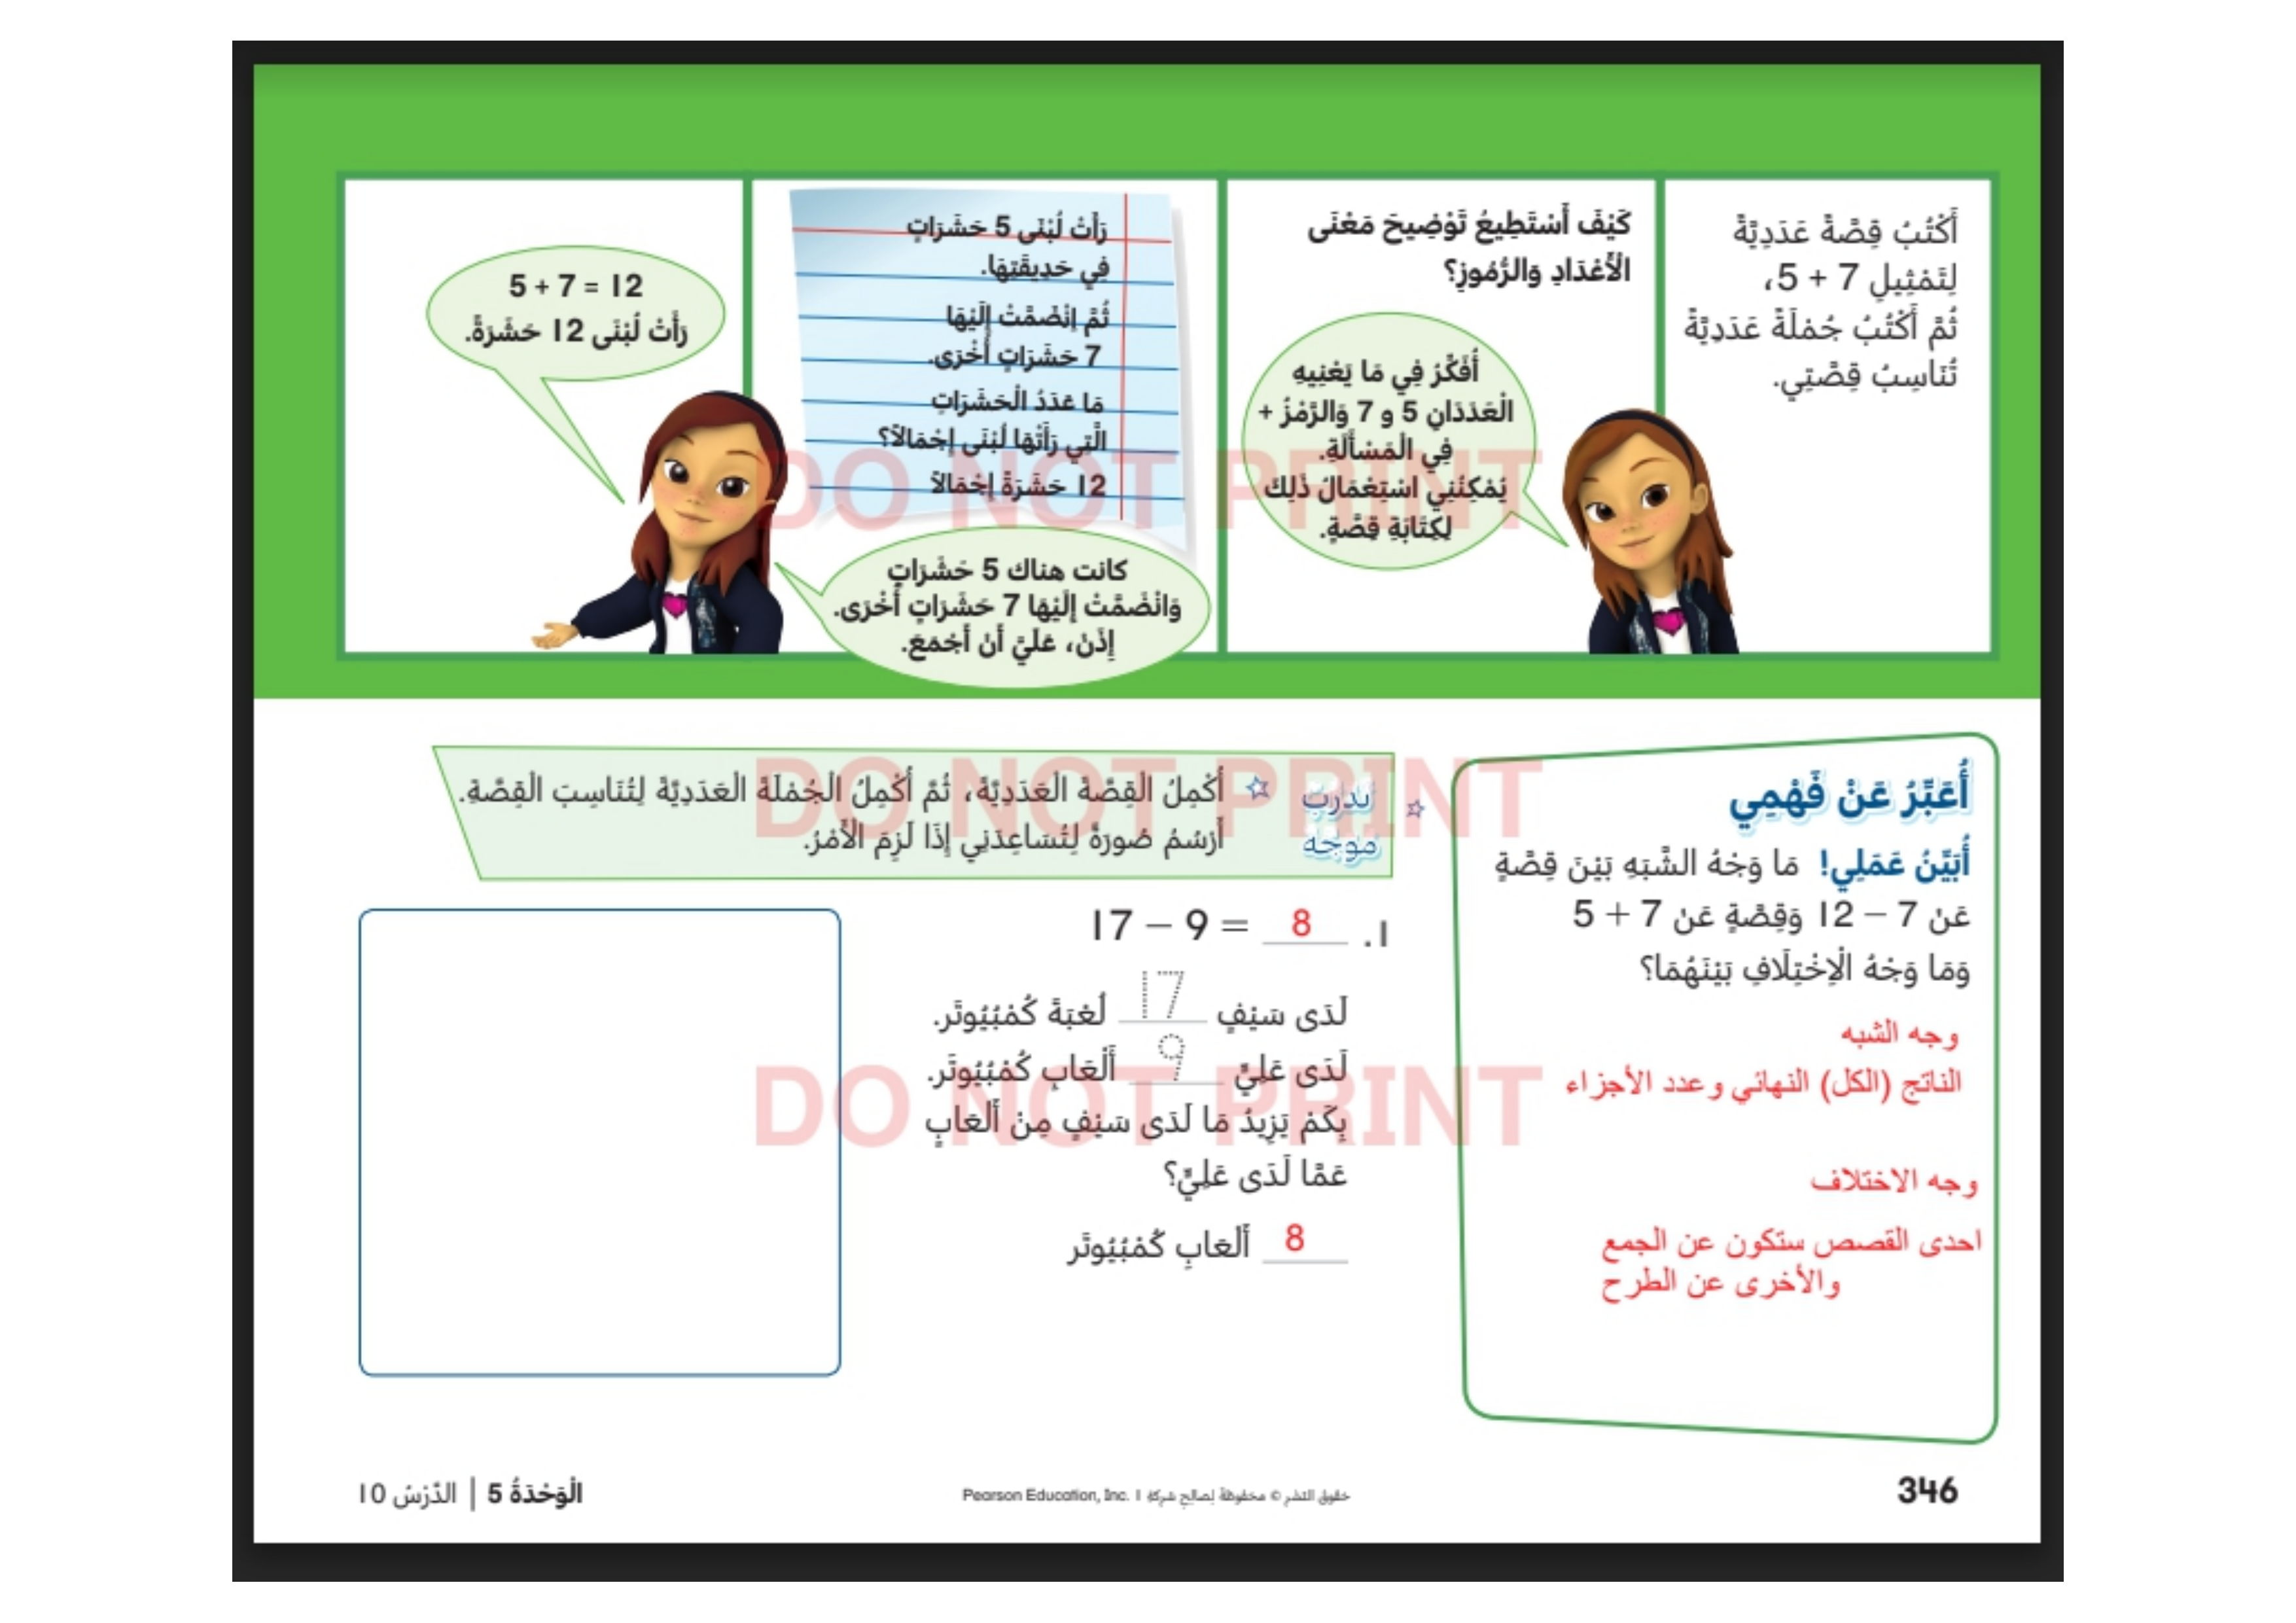 أَكْتُبُ قِصَّةً عَدَدِيَّةً
لِتَمْثِيلِ 7 + 5،
ثُمَّ أَكْتُبُ جُمْلَةً عَدَدِيَّةً
تُنَاسِبُ قِصَّتِي.
كَيْفَ أَسْتَطِيعُ تَوْضِيحَ مَعْنَى
الْأَعْدَادِ وَالرُّمُوزِ؟
أُفَكِّرُ فِي مَا يَعْنِيهِ
الْعَدَدَانِ 5 و 7 وَالرَّمْزُ +
فِي الْمَسْأَلَةِ.
يُمْكِنُنِي اسْتِعْمَالُ ذَلِكَ
لِكِتَابَةِ قِصَّةٍ.
رَأَتْ لُبْنَى 5 حَشَرَاتٍ
فِي حَدِيقَتِهَا.
ثُمَّ اِنْضَمَّتْ إِلَيْهَا
7 حَشَرَاتٍ أُخْرَى.
مَا عَدَدُ الْحَشَرَاتِ
الَّتِي رَأَتْهَا لُبْنَى إِجْمَالاً؟
12 حَشَرَةً إِجْمَالاً
كانت هناك 5 حَشَرَاتٍ
وَانْضَمَّتْ إِلَيْهَا 7 حَشَرَاتٍ أُخْرَى.
إِذَنْ، عَلَيَّ أَنْ أَجْمَعَ.
5 + 7 = 12
رَأَتْ لُبْنَى 12 حَشَرَةً.
DO NOT PRINT
أُعَبِّرُ عَنْ فَهْمِي
أُبَيِّنُ عَمَلِي! مَا وَجْهُ الشَّبَهِ بَيْنَ قِصَّةٍ
عَنْ 7 – 12 وَقِصَّةٍ عَنْ 7 + 5
وَمَا وَجْهُ الْاِخْتِلَافِ بَيْنَهُمَا؟
وجه الشبه
الناتج (الكل) النهائي وعدد الأجزاء
وجه الاختلاف
احدى القصص ستكون عن الجمع
والأخرى عن الطرح
☆ تدرب موجه ☆ أُكْمِلُ الْقِصَّةَ الْعَدَدِيَّةَ، ثُمَّ أُكْمِلُ الْجُمْلَةَ الْعَدَدِيَّةَ لِتُنَاسِبَ الْقِصَّةِ.
أَرْسُمُ صُورَةً لِتُسَاعِدَنِي إِذَا لَزِمَ الْأَمْرُ.
DO NOT PRINT
1. 17 – 9 = 8
لَدَى سَيْفٍ 17 لُعْبَةَ كُمْبُيُوتَر.
لَدَى عَلِيٍّ 9 أَلْعَابِ كُمْبُيُوتَر.
بِكَمْ يَزِيدُ مَا لَدَى سَيْفٍ مِنْ أَلْعَابٍ
عَمَّا لَدَى عَلِيٍّ؟
8 أَلْعَابِ كُمْبُيُوتَر
DO NOT PRINT
346
حقوق النشر © محفوظة لصالح شركة Pearson Education, Inc. 1
الْوَحْدَةُ 5 | الدَّرْسُ 10